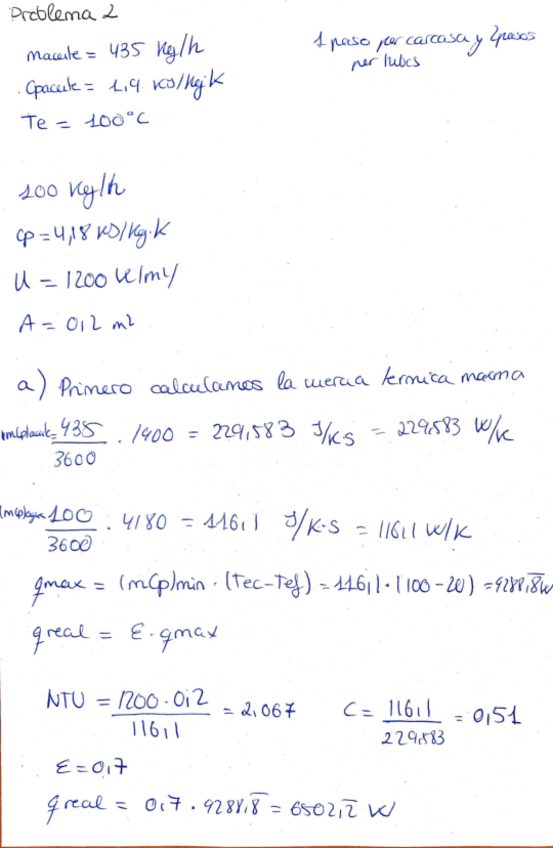 Problema 2
maceite = 435 Kg/h
1 paso por carcasa y 2 pasos
por tubos
Cpaceite = 1,9 KJ/Kg·K
Te = 100°C
100 Kg/h
Cp = 4,18 KJ/Kg·K
U = 1200
A = 0,2 m2
a) Primero calculamos la inercia termica maxima
(mCp)aceite = 435/3600 · 1900 = 229,583 J/K·s = 229,583 W/K
(mCp)agua = 100/3600 · 4180 = 116,1 J/K·s = 116,1 W/K
qmax = (mCp)min · (Tec-Tef) = 116,1 · (100-20) = 9288,8 W
qreal = ε · qmax
NTU = 1200 · 0,2/116,1 = 2,067 C = 116,1/229,583 = 0,51
ε = 0,7
qreal = 0,7 · 9288,8 = 6502,2 W